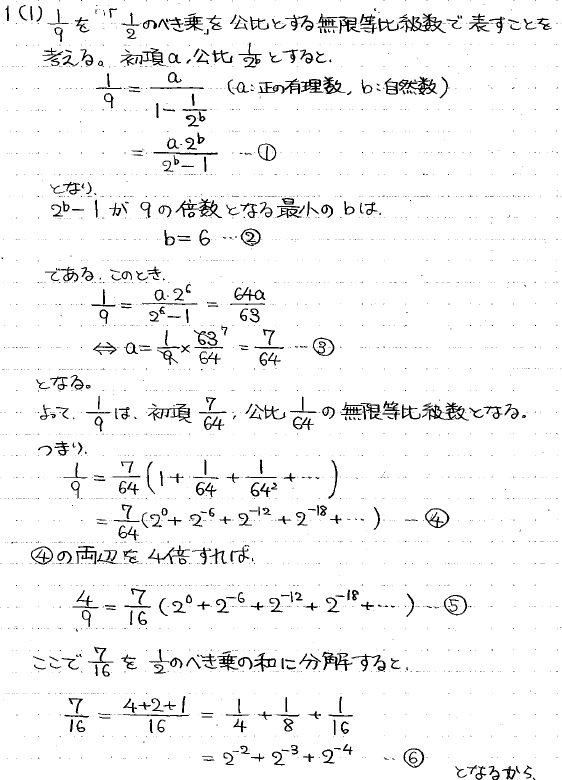 1(1) 1/9 を「1/2のべき乗」を公比とする無限等比級数で表すことを
考える。初項a,公比 1/2^b とすると,
1/9 = a/(1 - 1/2^b) (a:正の有理数, b:自然数)
= a・2^b/(2^b-1) …①
となり,
2^b-1 が 9の倍数となる最小のbは,
b=6 …②
である.このとき,
1/9 = a・2^6/(2^6-1) = 64a/63
⇔ a= 1/9 × 63/64 7 = 7/64 …③
となる。
よって, 1/9 は, 初項 7/64 , 公比 1/64 の無限等比級数となる。
つまり,
1/9 = 7/64 (1 + 1/64 + 1/64^2 + … )
= 7/64 (2^0 + 2^-6 + 2^-12 + 2^-18 + … ) …④
④の両辺を4倍すれば,
4/9 = 7/16 (2^0 + 2^-6 + 2^-12 + 2^-18 + … ) …⑤
ここで 7/16 を 1/2のべき乗の和に分解すると,
7/16 = (4+2+1)/16 = 1/4 + 1/8 + 1/16
= 2^-2 + 2^-3 + 2^-4 …⑥
となるから,